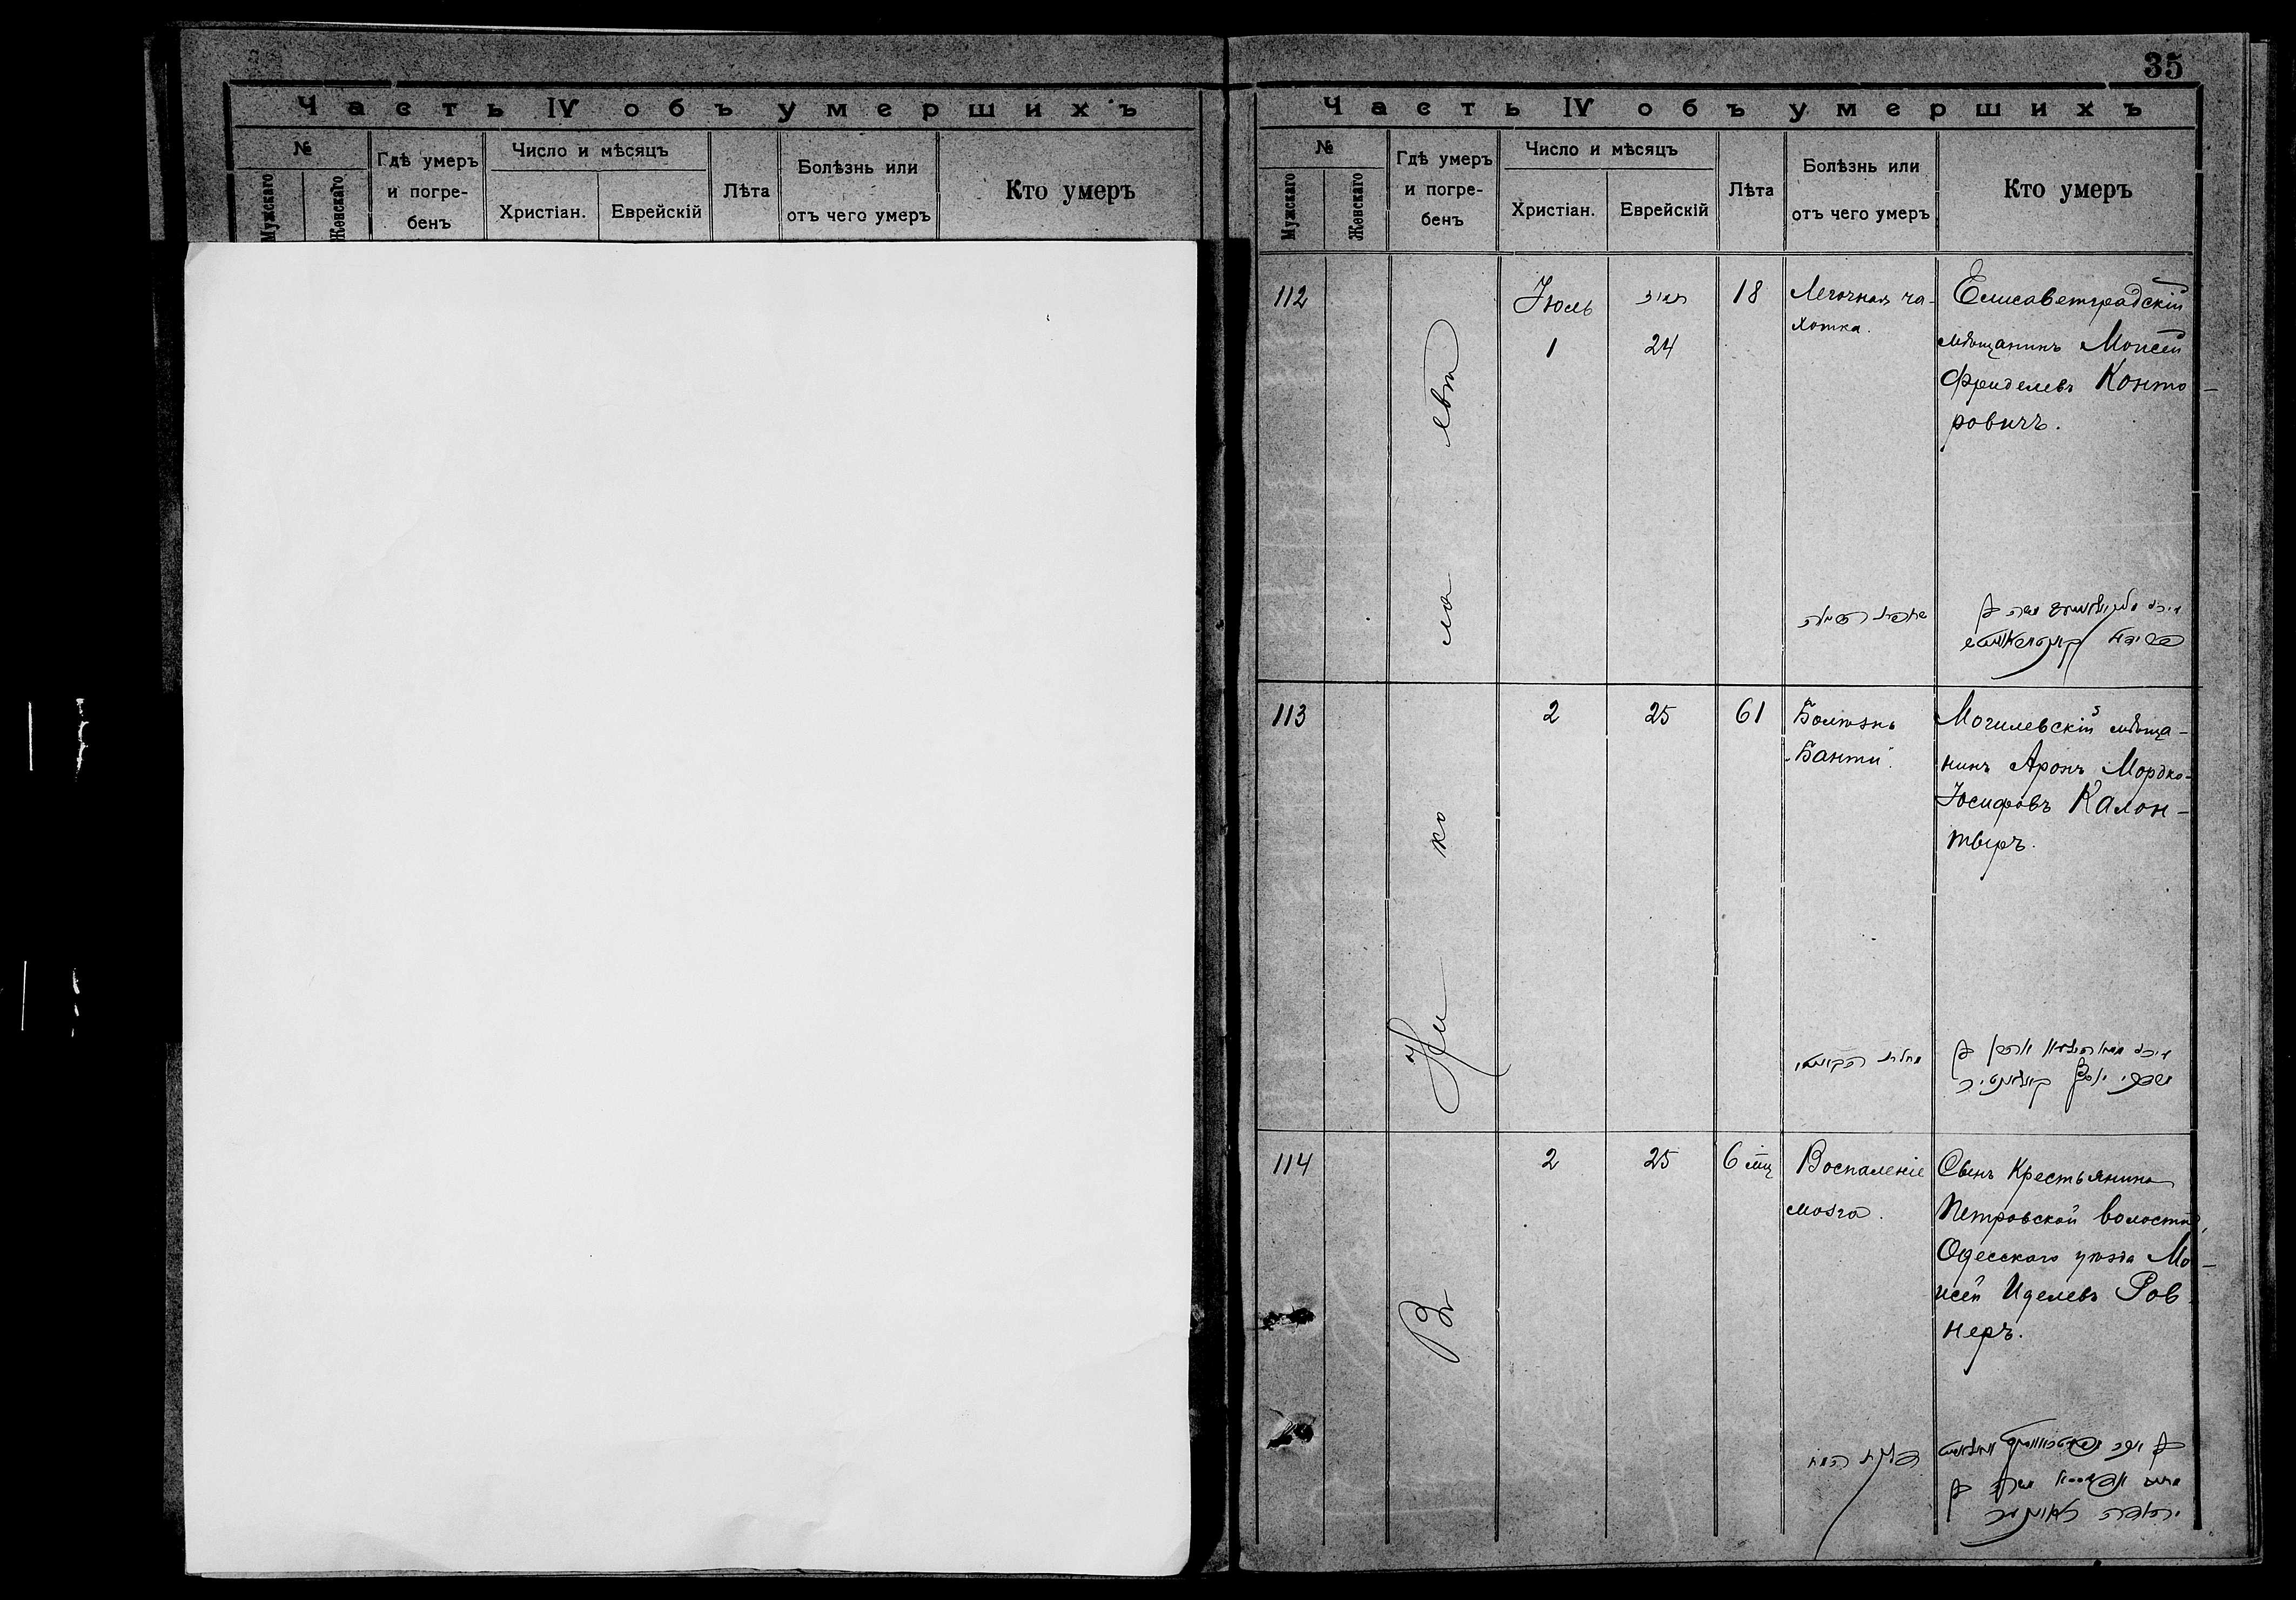 Часть IV объ умершихъ
№
Мужскаго
Женскаго
Гдѣ умеръ
и погре-
бенъ
Число и мѣсяцъ
Христіан.
Еврейскій
Лѣта
Болѣзнь или
отъ чего умеръ
Кто умеръ
35
Часть IV объ умершихъ
№
Мужскаго
Женскаго
Гдѣ умеръ
и погре-
бенъ
Число и мѣсяцъ
Христіан.
Еврейскій
Лѣта
Болѣзнь или
отъ чего умеръ
Кто умеръ
Въ Николаевѣ
112
Іюль
1
תמוז
24
18
Легочная ча-
хотка.
Елисаветградскій
мѣщанинъ Моисей
Фриделевъ Конто-
ровичъ.
113
2
25
61
Болѣзнь
"Банти".
Могилевскій мѣща-
нинъ Аронъ Мордко-
Іосифовъ Калон-
тыръ.
114
2
25
6 мц
Воспаленіе
мозга.
Сынъ Крестьянина
Петровской волости,
Одесскаго уѣзда Мо-
исей Иделевъ Ров-
неръ.